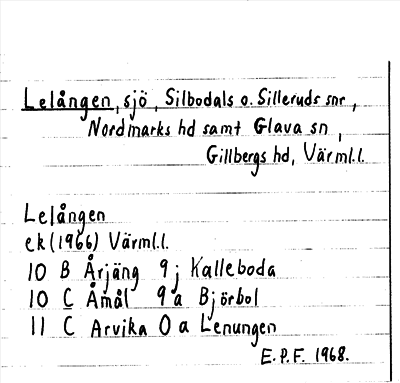 Lelången, sjö, Silbodals o. Silleruds snr,
Nordmarks hd samt Glava sn,
Gillbergs hd, Värml.l.
Lelången
ek (1966) Värml.l.
10 B Årjäng 9 j Kalleboda
10 C Åmål 9 a Björbol
11 C Arvika 0 a Lenungen
E.P.F. 1968.